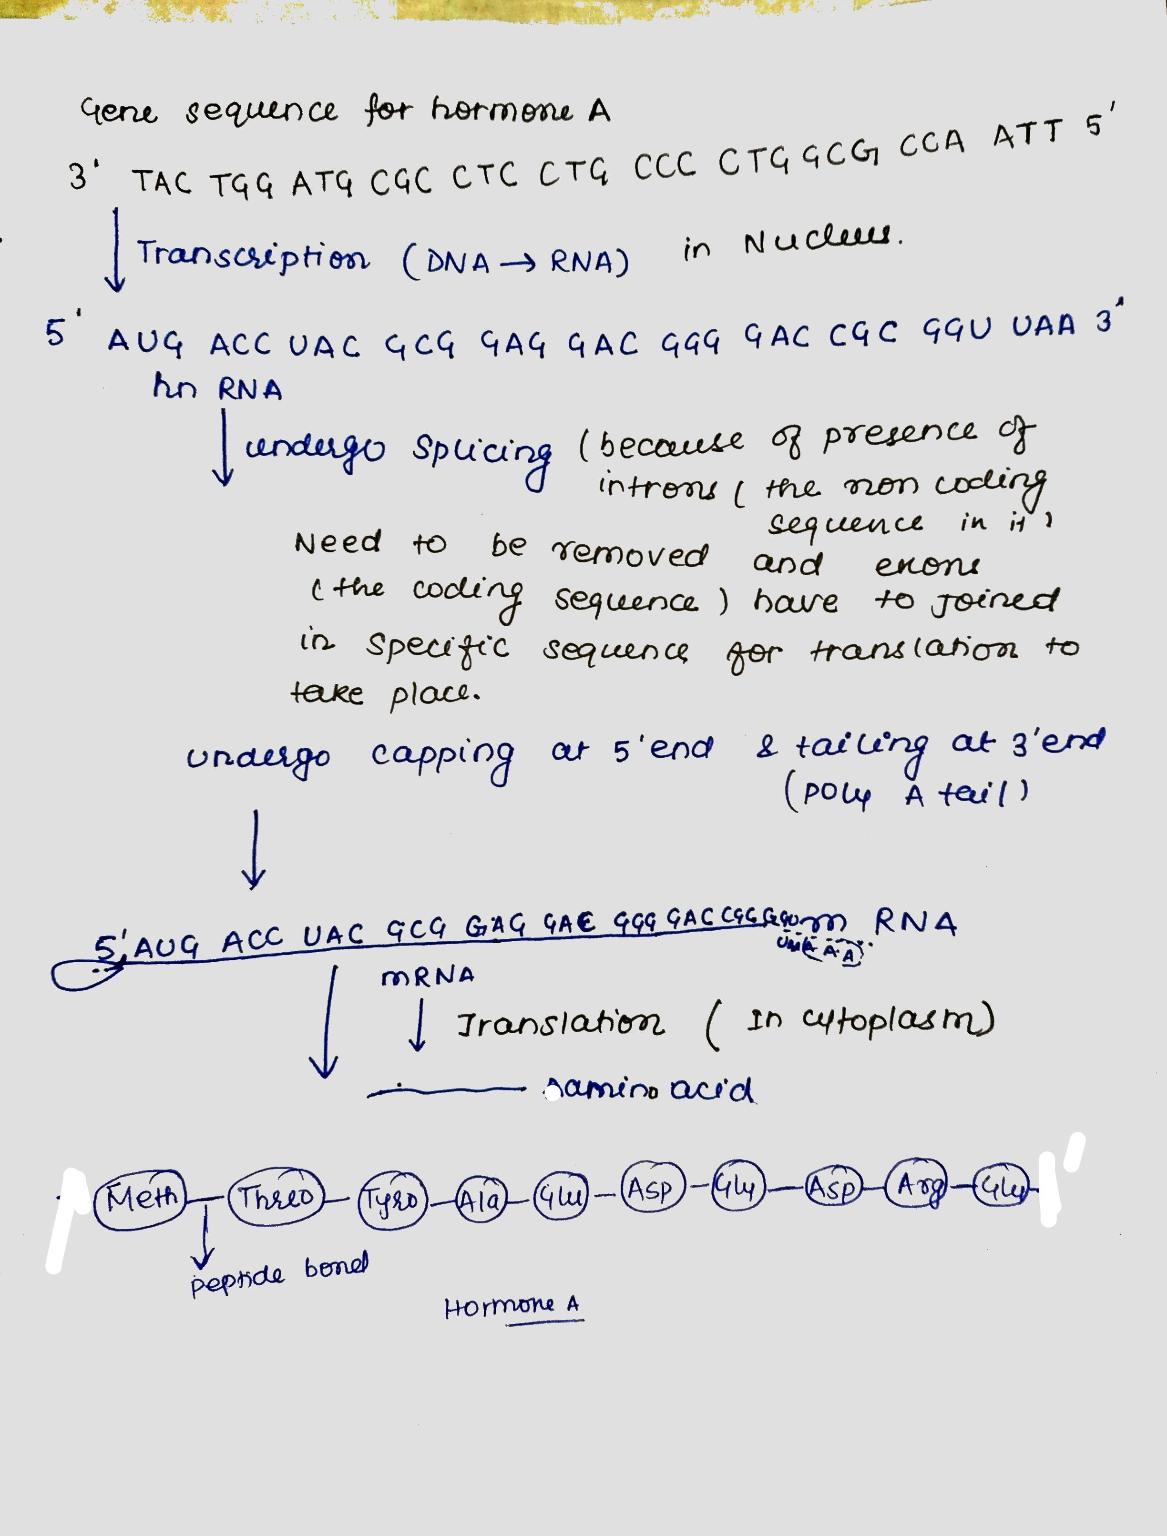 Gene sequence for hormone A
3' TAC TGG ATG CGC CTC CTG CCC CTG GCG CCA ATT 5'
Transcription (DNA → RNA) in Nucleus.
5' AUG ACC UAC GCG GAG GAC GGG GAC CGC GGU UAA 3'
hn RNA
undergo splicing (because of presence of
introns ( the non coding
sequence in it)
Need to be removed and exons
(the coding sequence) have to joined
in specific sequence for translation to
take place.
undergo capping at 5'end & tailing at 3'end
(poly A tail)
5' AUG ACC UAC GCG GAG GAC GGG GAC CGC GGU m RNA
UAA A A
mRNA
Translation ( In cytoplasm)
amino acid
Meth Threo Tyro Ala Glu Asp Gly Asp Arg Gly
peptide bond
Hormone A